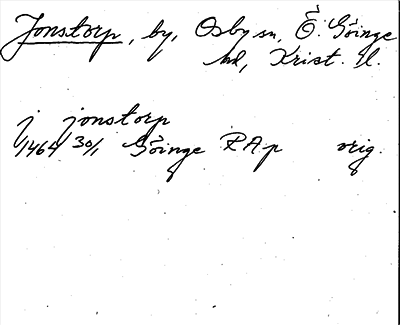 Jonstorp, by, Osby sn, Ö. Göinge
hd, Krist. l.
j jonstorp
1464 30/1 Göinge RAp orig.